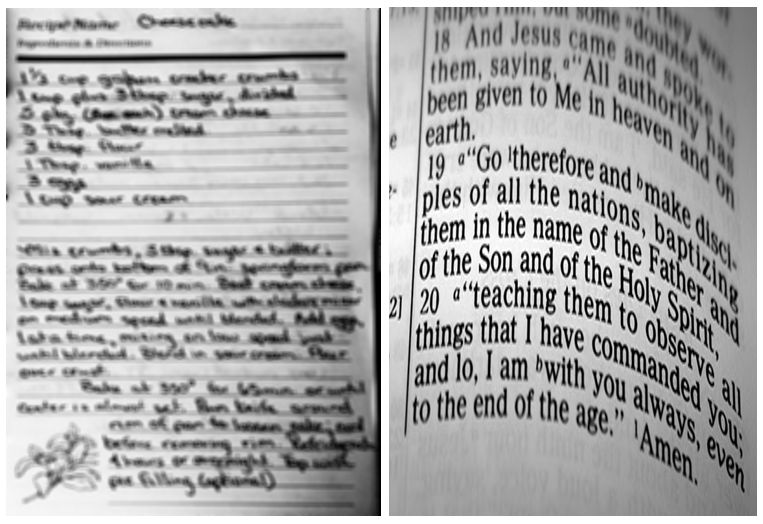 Recipe Name: Cheesecake
Ingredients & Directions
1 1/2 cup graham cracker crumbs
1 cup plus 3 tbsp. sugar, divided
5 pkg (8oz each) cream cheese
3 Tbsp. butter melted
3 tbsp. flour
1 Tbsp. vanilla
3 eggs
1 cup sour cream
Mix crumbs, 3 tbsp. sugar & butter;
press onto bottom of 9in. springform pan
Bake at 350° for 10 min. Beat cream cheese,
1 cup sugar, flour & vanilla with mixer
on medium speed until blended. Add eggs,
1 at a time, mixing on low speed just
until blended. Blend in sour cream. Pour
over crust.
Bake at 350° for 65 min or until
center is almost set. Run knife around
rim of pan to loosen cake; cool
before removing rim. Refrigerate
4 hours or overnight. Top with
pie filling (optional)
shiped Him; but some ᵃdoubted.
18 And Jesus came and spoke to
them, saying, ᵃ“All authority has
been given to Me in heaven and on
earth.
19 ᵃ“Go ¹therefore and ᵇmake disci-
ples of all the nations, baptizing
them in the name of the Father and
of the Son and of the Holy Spirit,
20 ᵃ“teaching them to observe all
things that I have commanded you;
and lo, I am ᵇwith you always, even
to the end of the age.” ¹Amen.